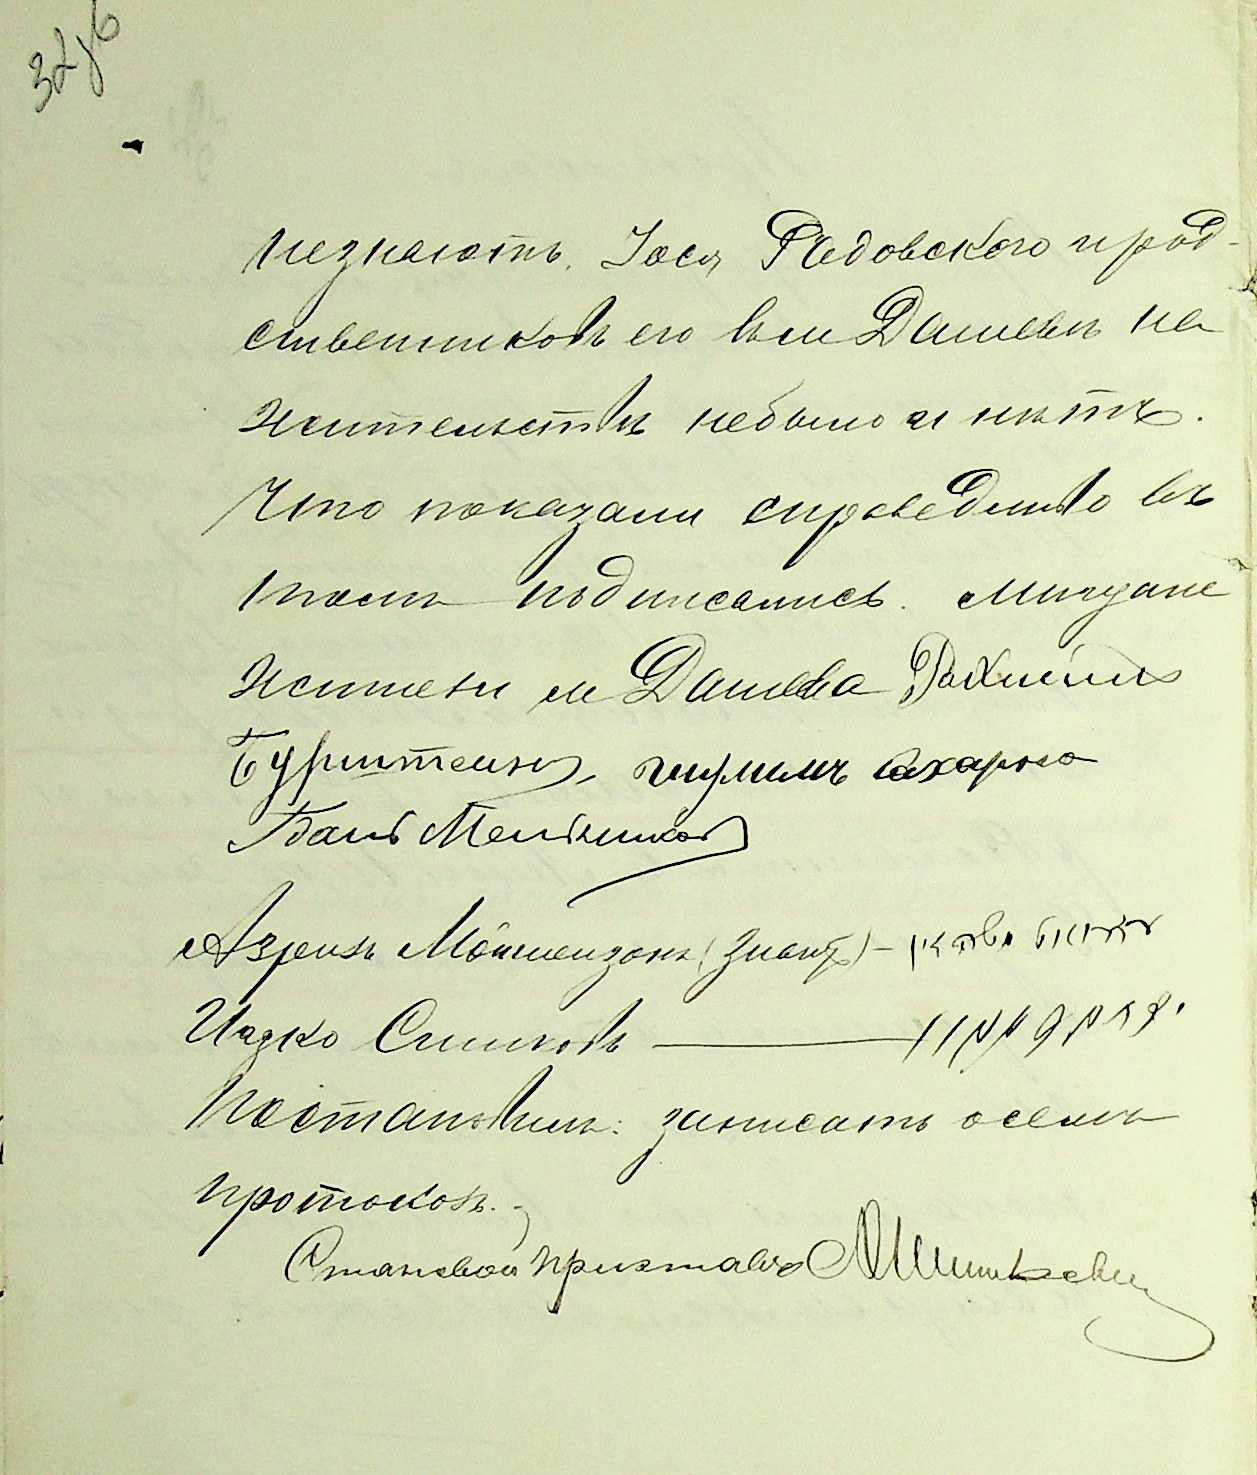 незнаютъ. Іося Радовского и род-
ственниковъ его въ м Дашевѣ на
жительствѣ небыло и нѣтъ.
Что показали справедливо въ
томъ подписались. Мещане
жители м Дашева Рахміиль
Бурштейнъ,
Иванъ Мельников
Азріилъ Мошензонъ (Знакъ) –
Ицко Спиковъ
Постановилъ: записать о семъ
протоколъ.
Становой Приставъ